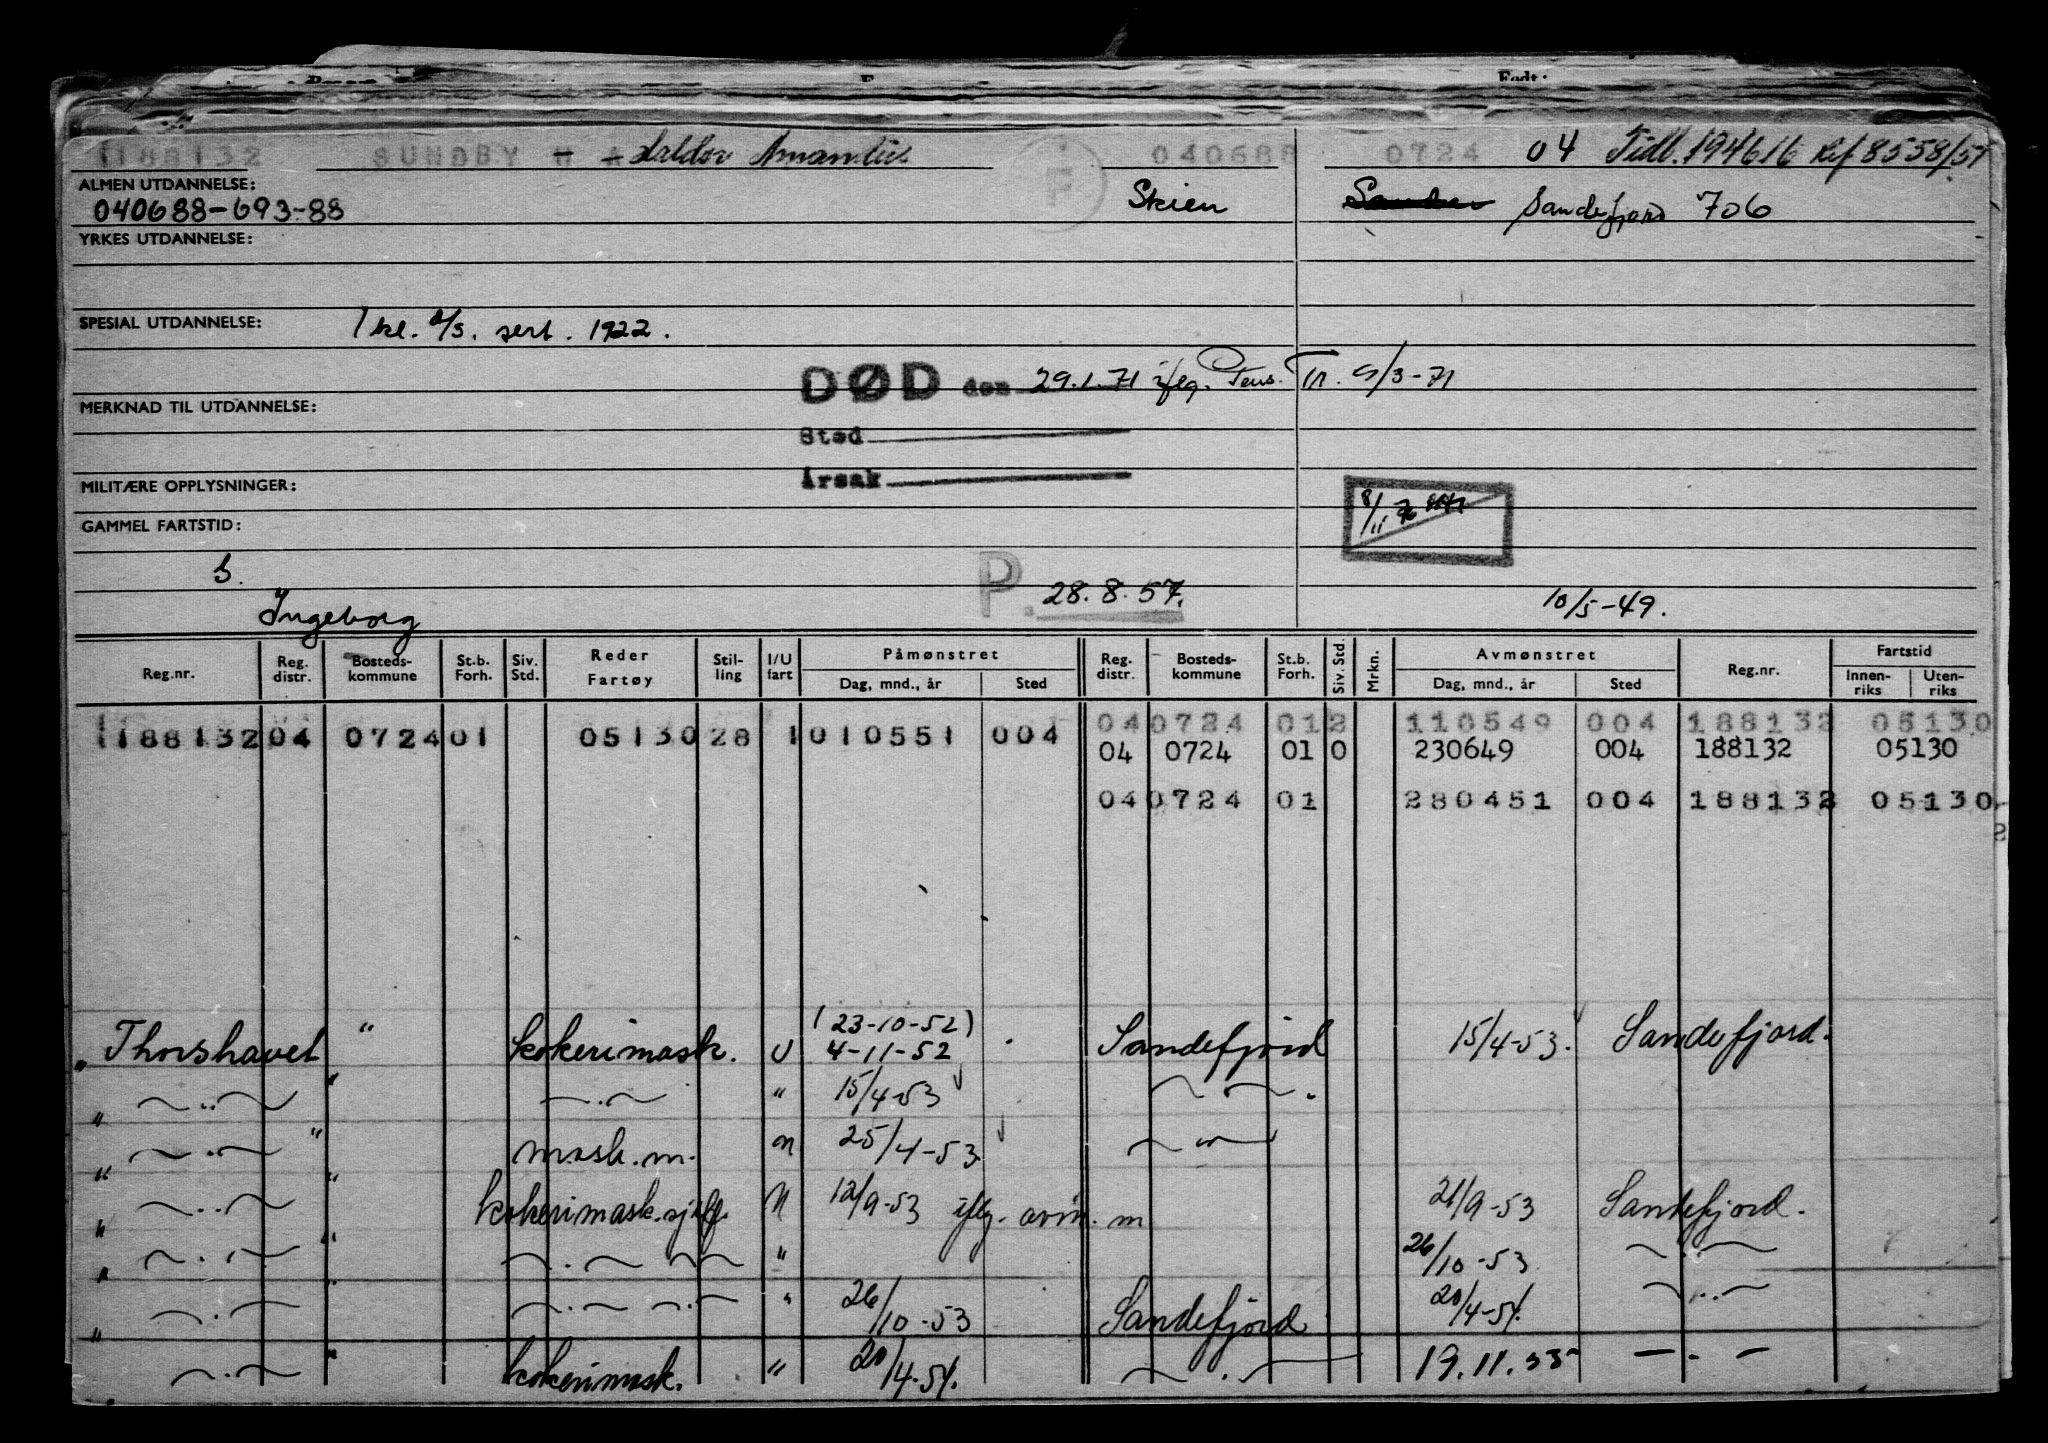 Født:
1188132 SUNDBY H A Haldor Amantus 040688 0724 04 Tidl. 194616 Ref 8558/57
ALMEN UTDANNELSE:
040688-693-88 Skien Sandefjord 706
F
YRKES UTDANNELSE:
SPESIAL UTDANNELSE: 1 kl. d/s. sert. 1922.
DØD den 29.1.71 iflg. Pens. Tr. 9/3-71
MERKNAD TIL UTDANNELSE:
Sted
Årsak
MILITÆRE OPPLYSNINGER:
8/11 76
GAMMEL FARTSTID:
S.
P. 28.8.57. 10/5-49.
Ingeborg
Reg.nr. Reg. distr. Bosteds-kommune St.b. Forh. Siv. Std. Reder Fartøy Stil-ling I/U fart Påmønstret Dag, mnd., år Sted Reg. distr. Bosteds-kommune St.b. Forh. Siv. Std. Mrkn. Avmønstret Dag, mnd., år Sted Reg.nr. Fartstid Innen-riks Uten-riks
04 0724 01 2 110549 004 188132 05130
1188132 04 0724 01 05130 28 1 010551 004
04 0724 01 0 230649 004 188132 05130
04 0724 01 280451 004 188132 05130
2
(23-10-52)
" Thorshavet " kokerimask. U 4-11-52 Sandefjord 15/4-53. Sandefjord.
" —..— " —.— " 15/4-53 — — .
" —.— " mask.m. " 25/4-53 —"—
" —..— " kokerimask.sjef. " 12/9-53 iflg. avm. m 21/9-53 Sandefjord.
" —.— " —.— — " 26/10-53 —.—
" —.— " —.— —.— " 26/10-53 Sandefjord 20/4-54. —..—
" —.— " kokerimask. " 20/4-54. —.— 19.11.55 —.—